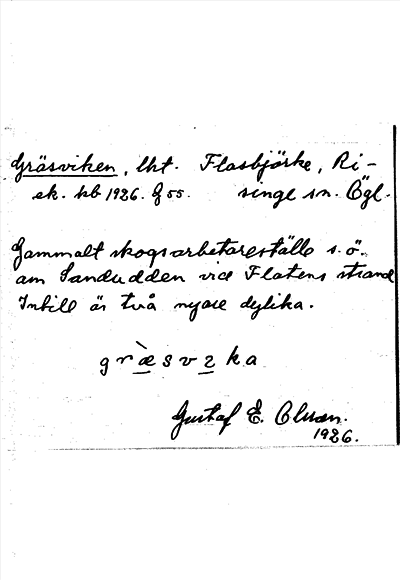 Gräsviken, lht. Flasbjörke, Ri-
ek. kb 1926. g 55. singe sn. Ögl.
Gammalt skogsarbetareställe s.ö.
om Sandudden vid Flatens strand
Intill är två nyare dylika.
græsvika
Gustaf E.
1926.